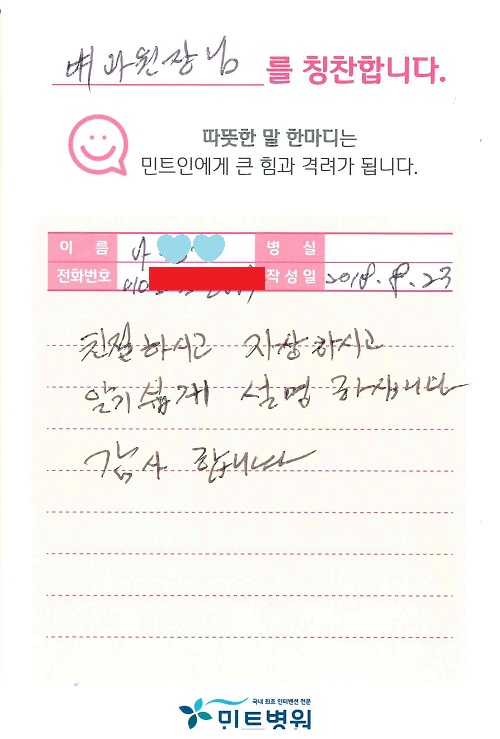 배과원장님 를 칭찬합니다.
따뜻한 말 한마디는
민트인에게 큰 힘과 격려가 됩니다.
이 름 병 실
전화번호 작성일 2018. 8. 23
친절하시고 자상하시고
알기쉽게 설명 하십니다
감사 합니다
국내 최초 인터벤션 전문
민트병원